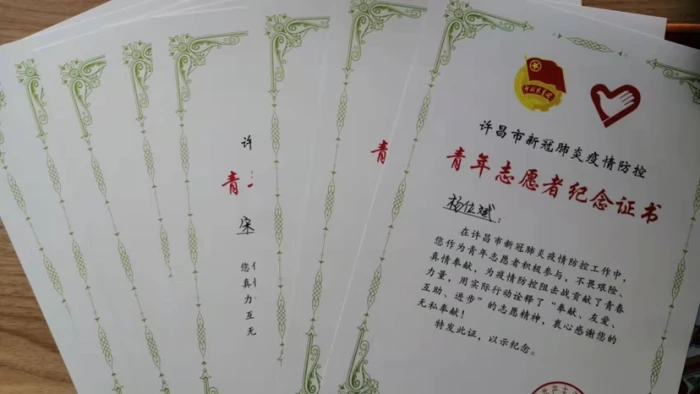 许昌市新冠肺炎疫情防控
青年志愿者纪念证书
杨位斌：
在许昌市新冠肺炎疫情防控工作中，
您作为青年志愿者积极参与，不畏艰险、
真情奉献，为疫情防控阻击战贡献了青春
力量，用实际行动诠释了“奉献、友爱、
互助、进步”的志愿精神，衷心感谢您的
无私奉献！
特发此证，以示纪念。
青
许
青
宋
您
真
力
互
无